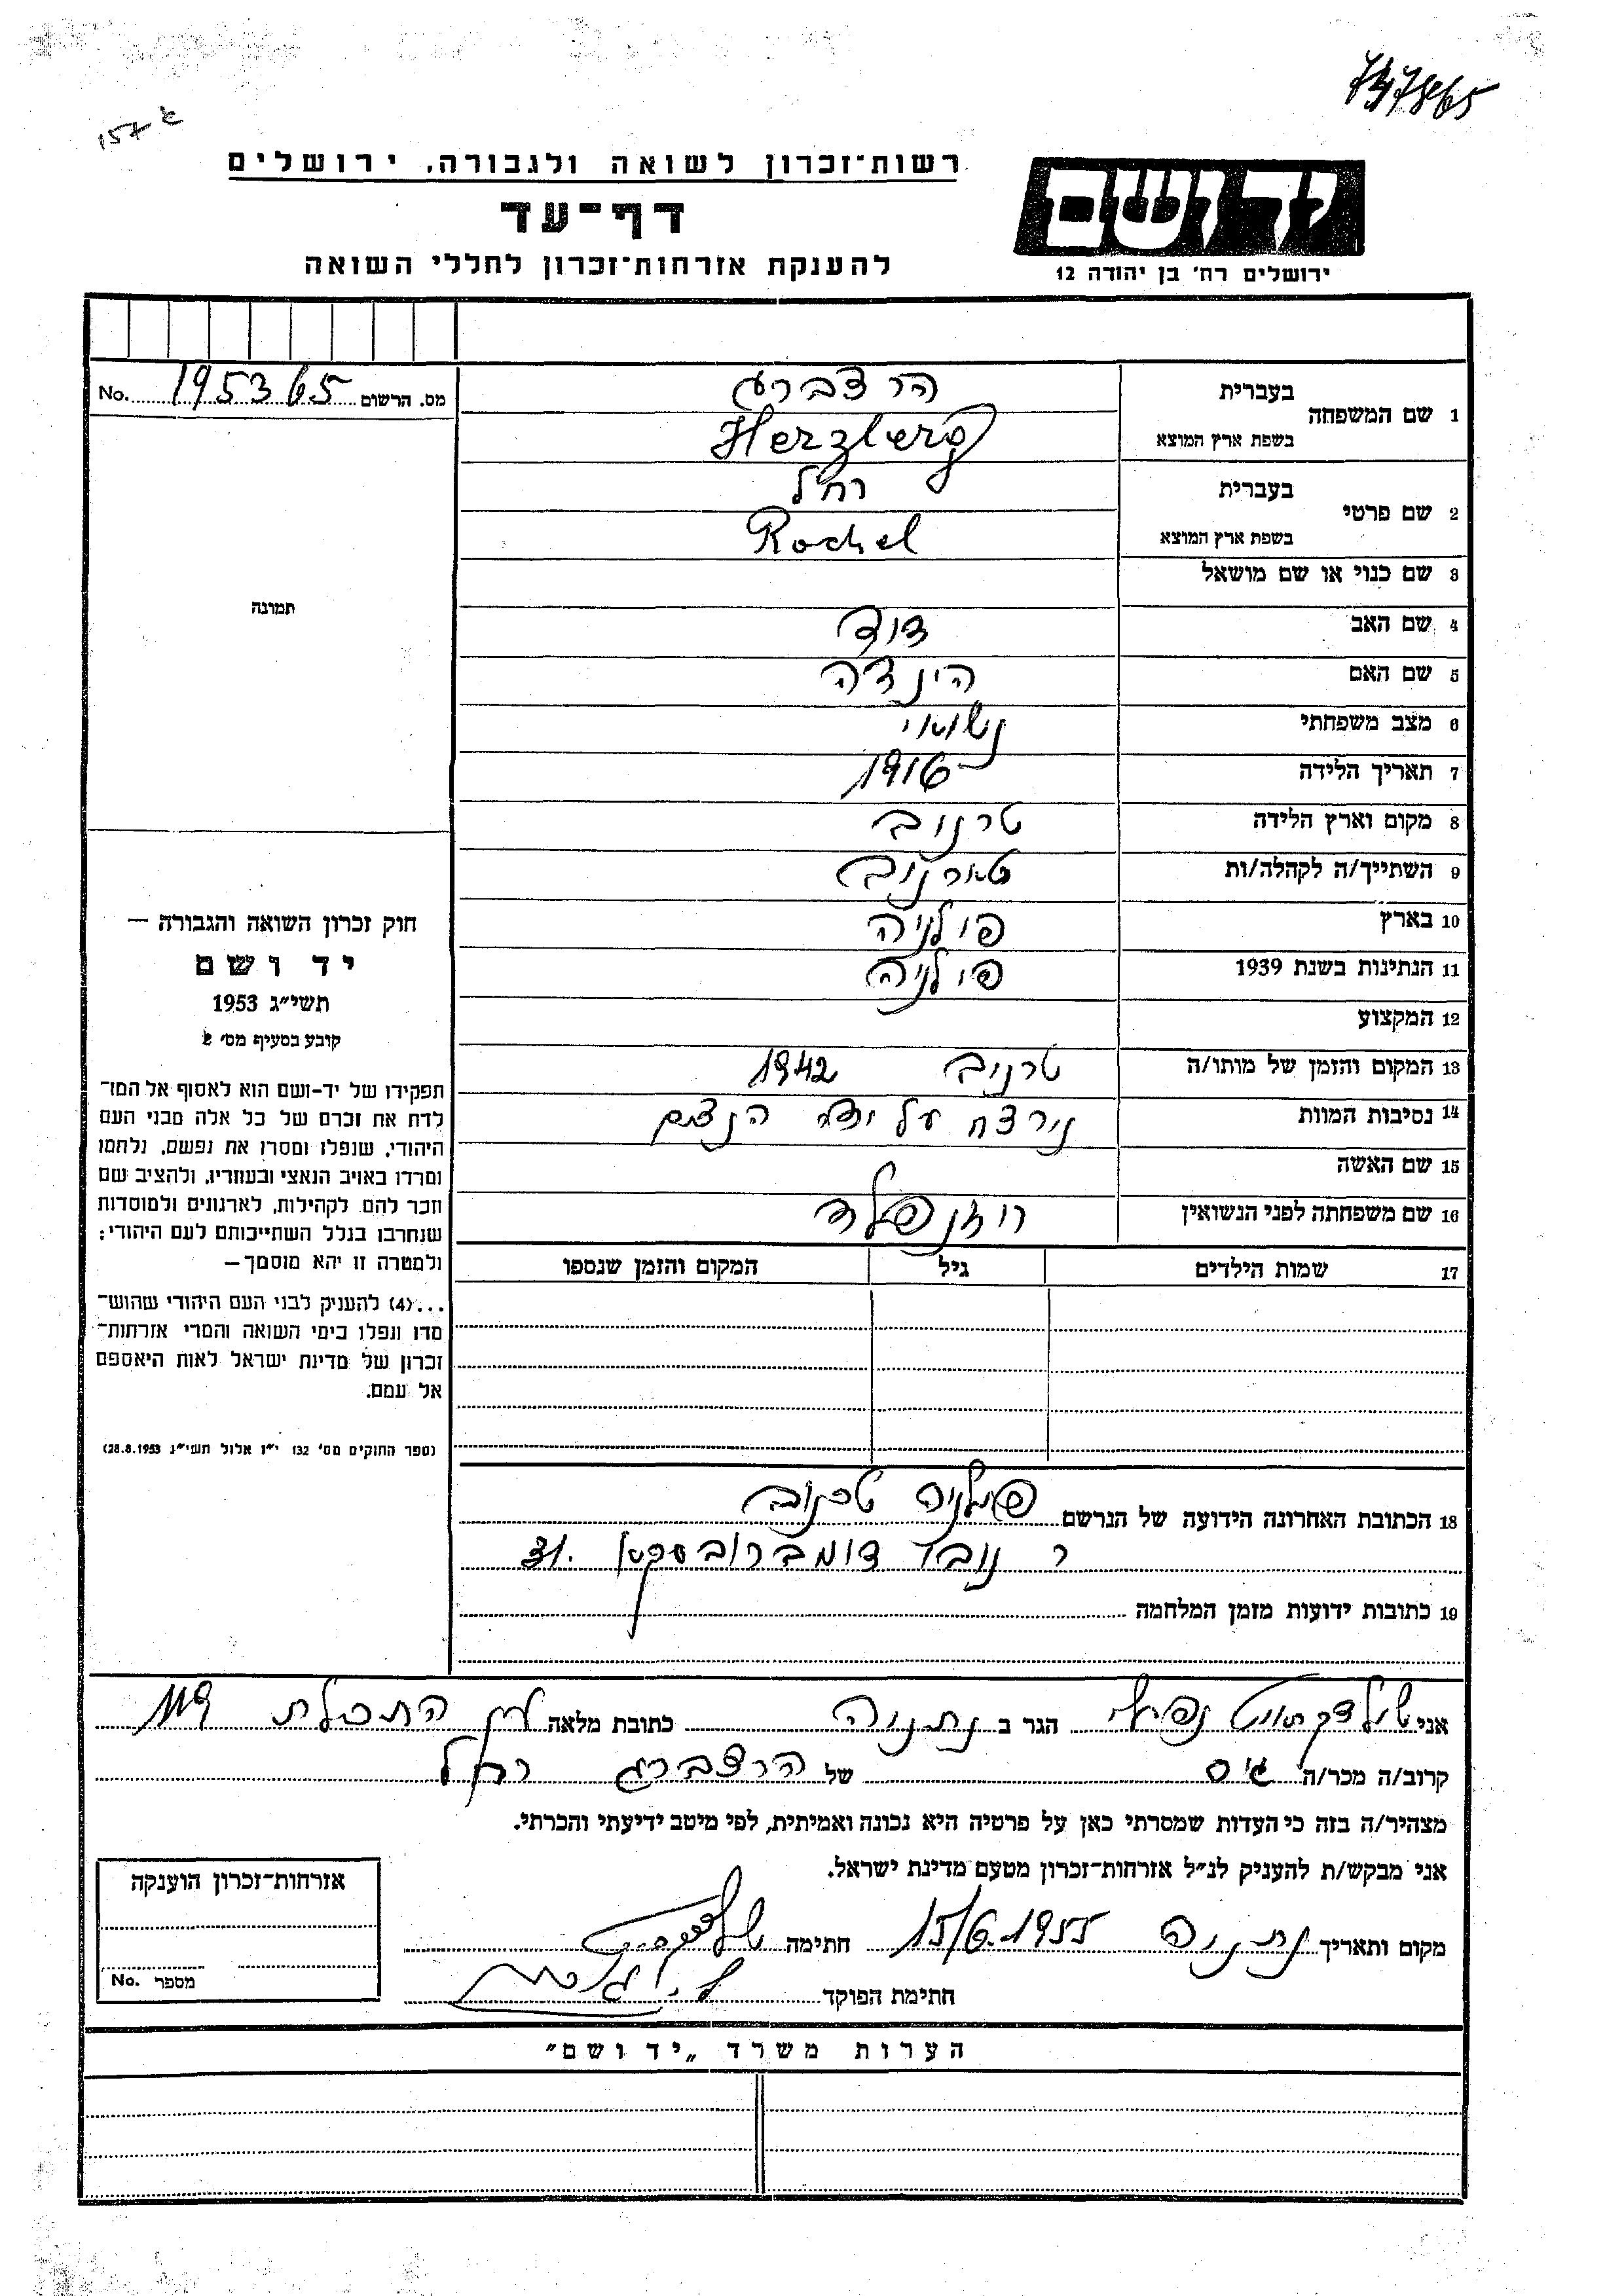 737865
157 א
רשות־זכרון לשואה ולגבורה, ירושלים
דף־עד
להענקת אזרחות־זכרון לחללי השואה
יד ושם
ירושלים רח' בן יהודה 12
מס. הרשום 195365 No.
1 שם המשפחה
בעברית
הרצברג
בשפת ארץ המוצא
Herzberg
2 שם פרטי
בעברית
רחל
בשפת ארץ המוצא
Rochel
3 שם כנוי או שם מושאל
4 שם האב דוד
5 שם האם הינדה
6 מצב משפחתי נשואי
7 תאריך הלידה 1916
8 מקום וארץ הלידה טרנוב
9 השתייך/ה לקהלה/ות טארנוב
10 בארץ פולניה
11 הנתינות בשנת 1939 פולניה
12 המקצוע
13 המקום והזמן של מותו/ה טרנוב 1942
14 נסיבות המוות נירצח על ידי הנצים
15 שם האשה
16 שם משפחתה לפני הנשואין רוזנפלד
17 שמות הילדים גיל המקום והזמן שנספו
תמונה
חוק זכרון השואה והגבורה —
יד ושם
תשי״ג 1953
קובע בסעיף מס' 2
תפקידו של יד-ושם הוא לאסוף אל המו־
לדת את זכרם של כל אלה מבני העם
היהודי, שנפלו ומסרו את נפשם, נלחמו
ומרדו באויב הנאצי ובעוזריו, ולהציב שם
וזכר להם לקהילות, לארגונים ולמוסדות
שנחרבו בגלל השתייכותם לעם היהודי;
ולמטרה זו יהא מוסמך —
...(4) להעניק לבני העם היהודי שהוש־
מדו ונפלו בימי השואה והמרי אזרחות־
זכרון של מדינת ישראל לאות היאספם
אל עמם.
(ספר החוקים מס' 132 י״ז אלול תשי״ג 28.8.1953)
18 הכתובת האחרונה הידועה של הנרשם פולניה טרנוב
ר נובו דומברובסקא 31.
19 כתובות ידועות מזמן המלחמה
אני הגר ב נתניה כתובת מלאה התכלת 119
קרוב/ה מכר/ה גיס של הרצברג רחל
מצהיר/ה בזה כי העדות שמסרתי כאן על פרטיה היא נכונה ואמיתית, לפי מיטב ידיעתי והכרתי.
אני מבקש/ת להעניק לנ״ל אזרחות־זכרון מטעם מדינת ישראל.
מקום ותאריך נתניה 15/6.1955 חתימה
חתימת הפוקד
אזרחות־זכרון הוענקה
מספר No.
הערות משרד „יד ושם״